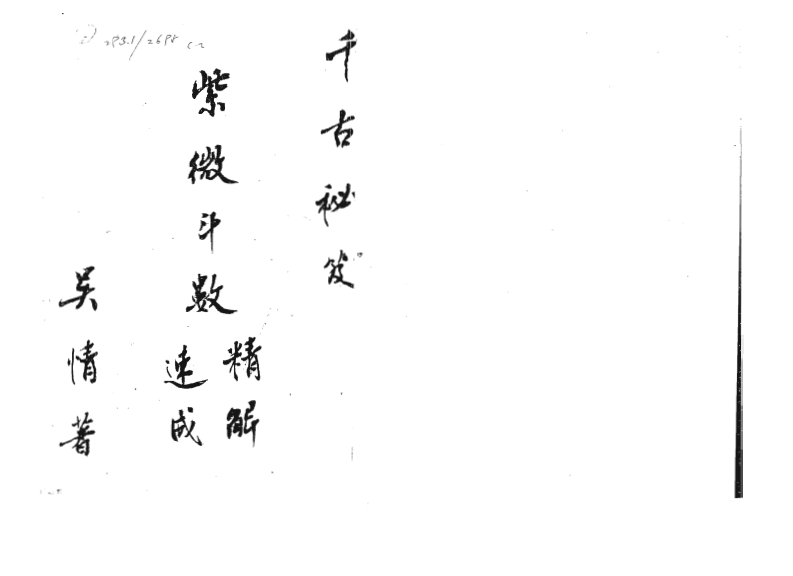 千古秘笈
紫微斗數
精解
速成
吳情著
293.1/2698